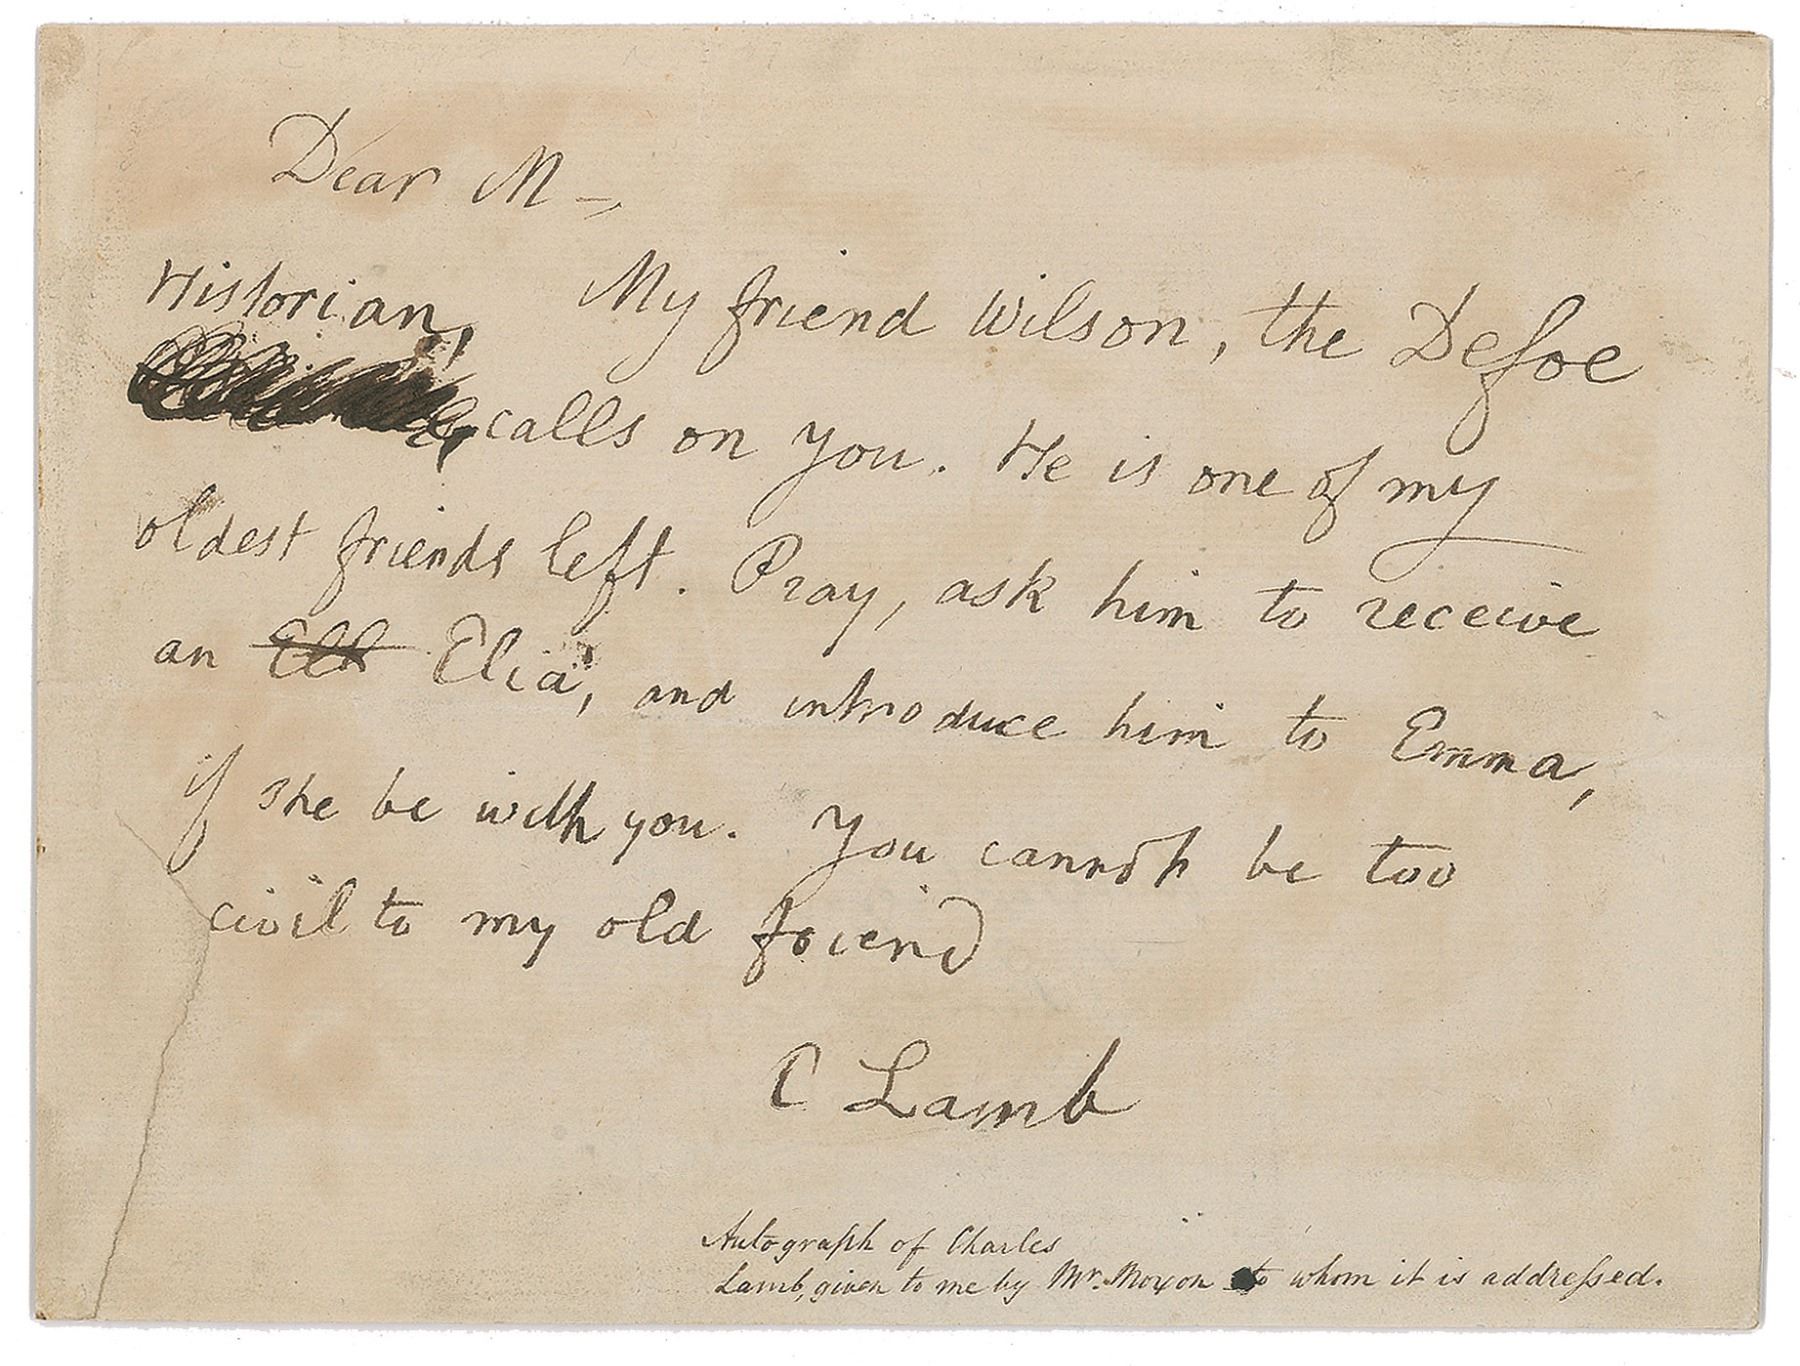 Dear M—,
My friend Wilson, the Defoe
Historian,
calls on you. He is one of my
oldest friends left. Pray, ask him to receive
an Elia, and introduce him to Emma,
if she be with you. You cannot be too
civil to my old friend
C Lamb
Autograph of Charles
Lamb, given to me by Mr. Moxon to whom it is addressed.